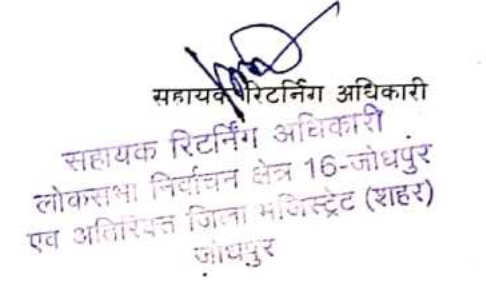 सहायक रिटर्निग अधिकारी
सहायक रिटर्निंग अधिकारी
लोकसभा निर्वाचन क्षेत्र 16-जोधपुर
एव अतिरिक्त जिला मजिस्ट्रेट (शहर)
जोधपुर